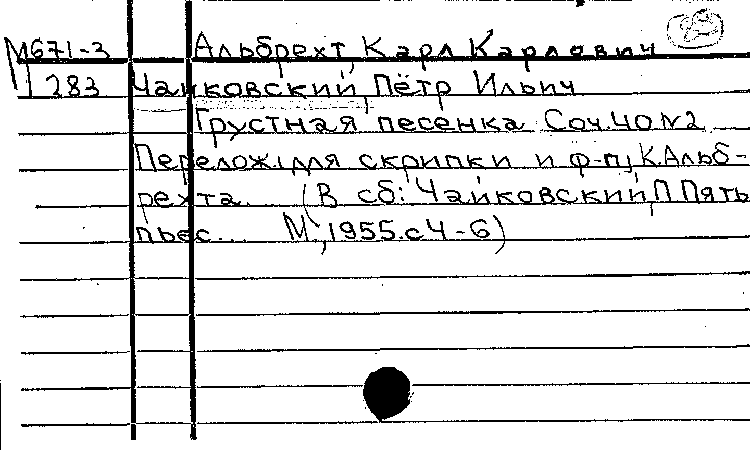 М671-3 Альбрехт, Карл Карлович
283 Чайковский, Пётр Ильич
Грустная песенка Соч.40 №2
Перелож. для скрипки и ф-п, К.Альб-
рехта. (В сб: Чайковский, П. Пять
пьес... М., 1955. с 4-6)